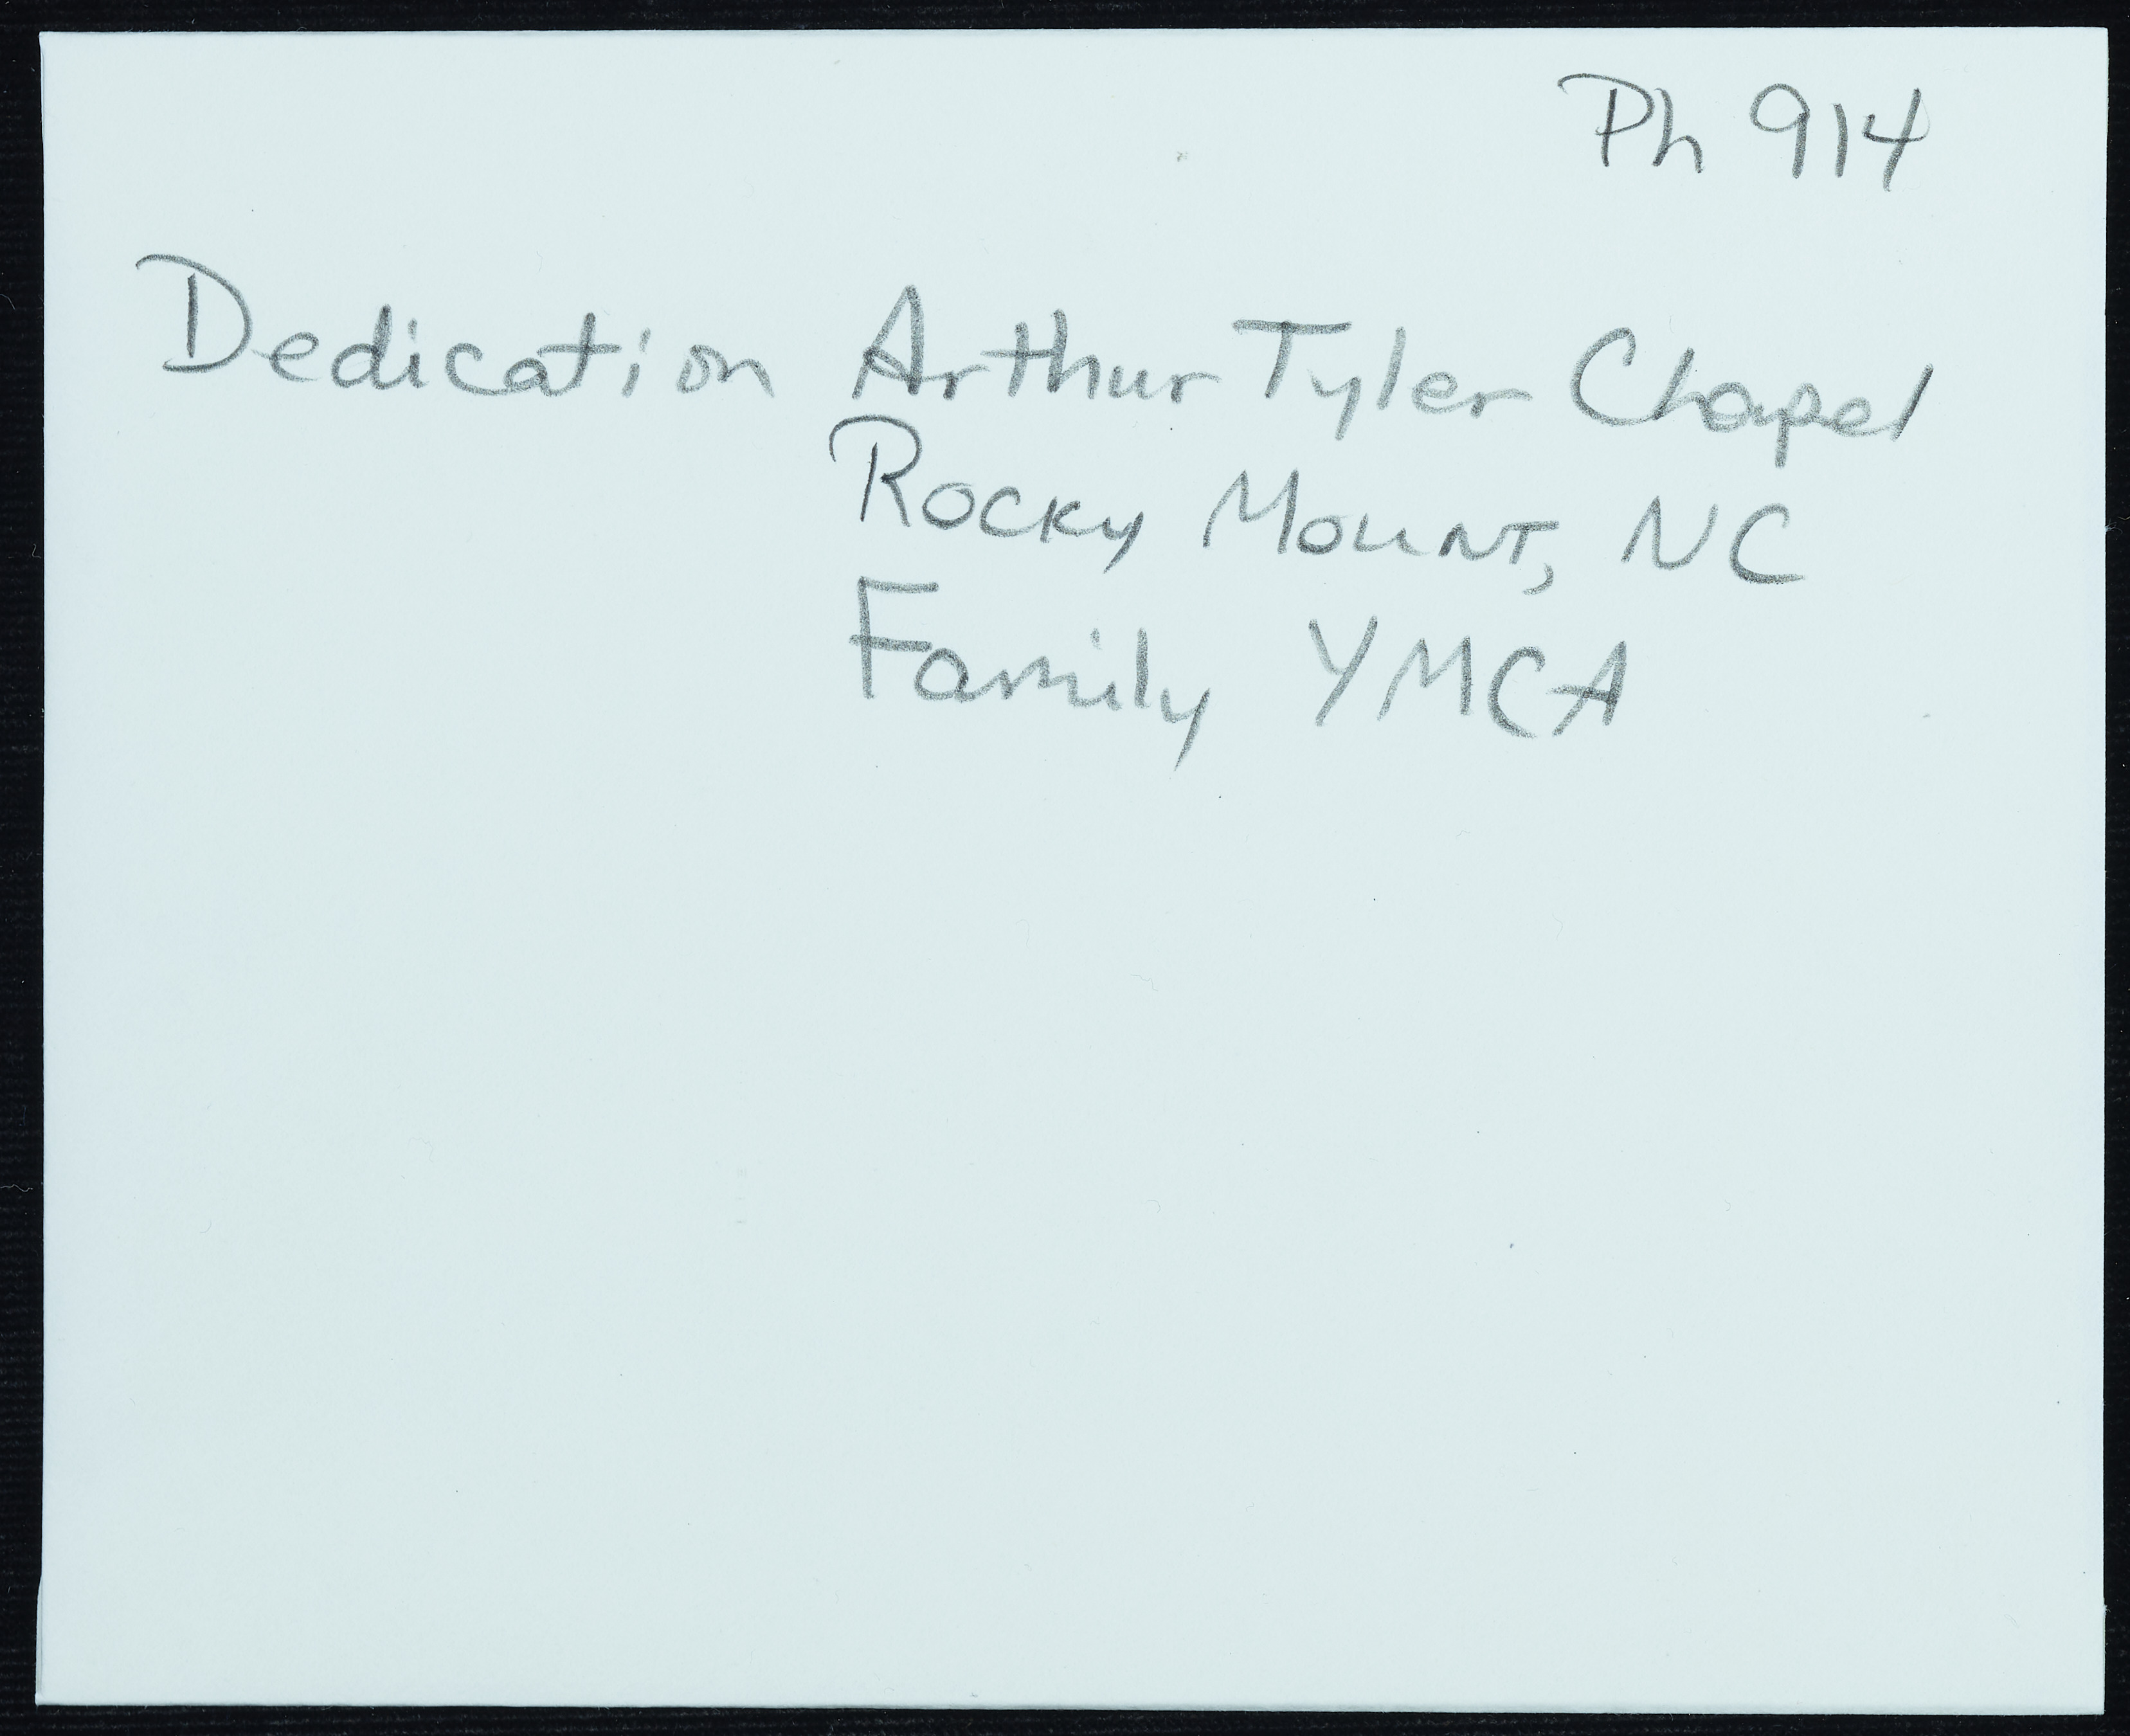 Ph 914
Dedication Arthur Tyler Chapel
Rocky Mount, NC
Family YMCA